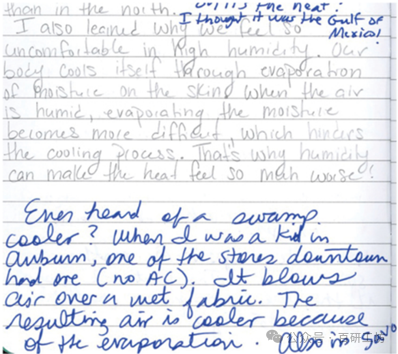 than in the north.
is the heat!
I thought it was the Gulf of
Mexico!
I also learned why we feel so
uncomfortable in high humidity. Our
body cools itself through evaporation
of moisture on the skin; when the air
is humid, evaporating the moisture
becomes more difficult, which hinders
the cooling process. That's why humidity
can make the heat feel so much worse!
Ever heard of a swamp
cooler? When I was a kid in
Auburn, one of the stores downtown
had one (no AC). It blows
air over a wet fabric. The
resulting air is cooler because
of the evaporation. Also in